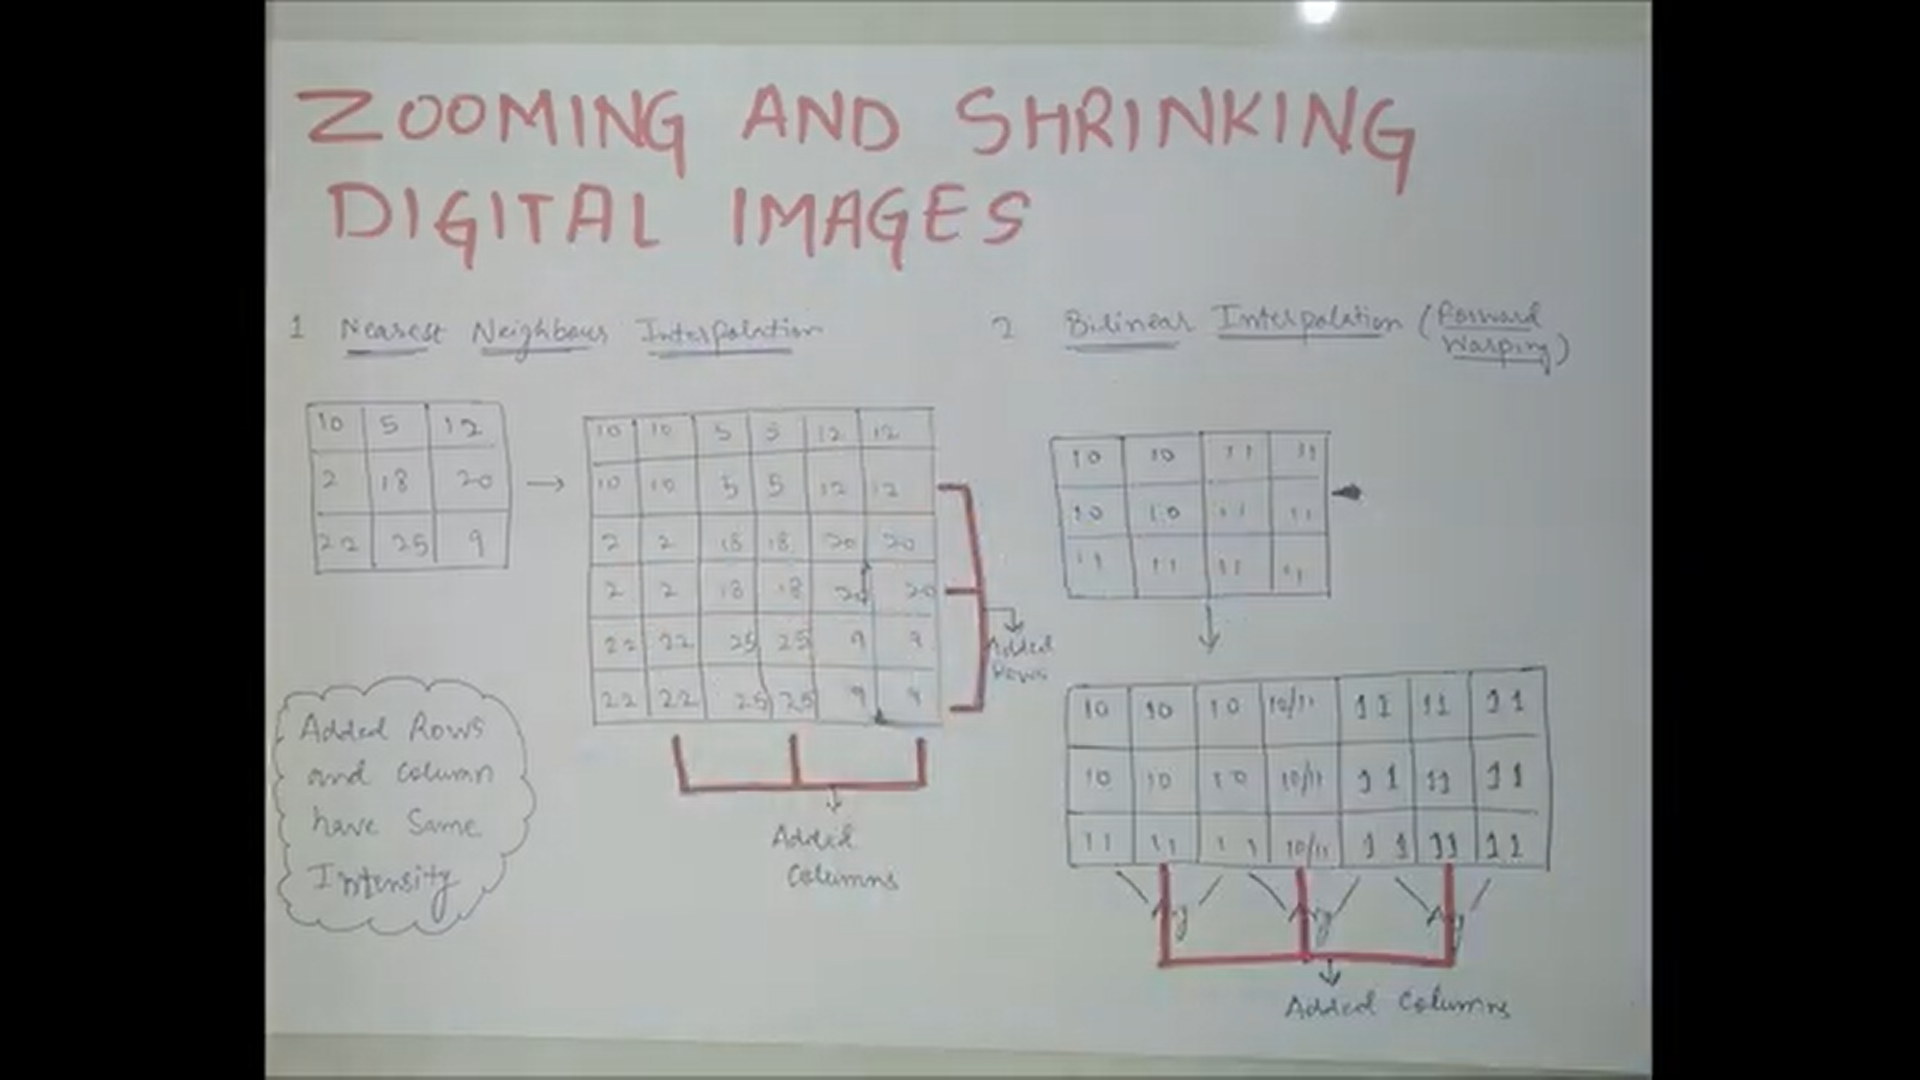 ZOOMING AND SHRINKING
DIGITAL IMAGES
1 Nearest Neighbour Interpolation
10 5 12
2 18 20
22 25 9
10 10 5 5 12 12
10 10 5 5 12 12
2 2 18 18 20 20
2 2 18 18 20 20
22 22 25 25 9 9
22 22 25 25 9 9
Added
Rows
Added
Columns
Added Rows
and Column
have Same
Intensity
2 Bilinear Interpolation (Forward
Warping)
10 10 11 11
10 10 11 11
11 11 11 11
10 10 10 10/11 11 11 11
10 10 10 10/11 11 11 11
11 11 11 10/11 11 11 11
Avg Avg Avg
Added Columns